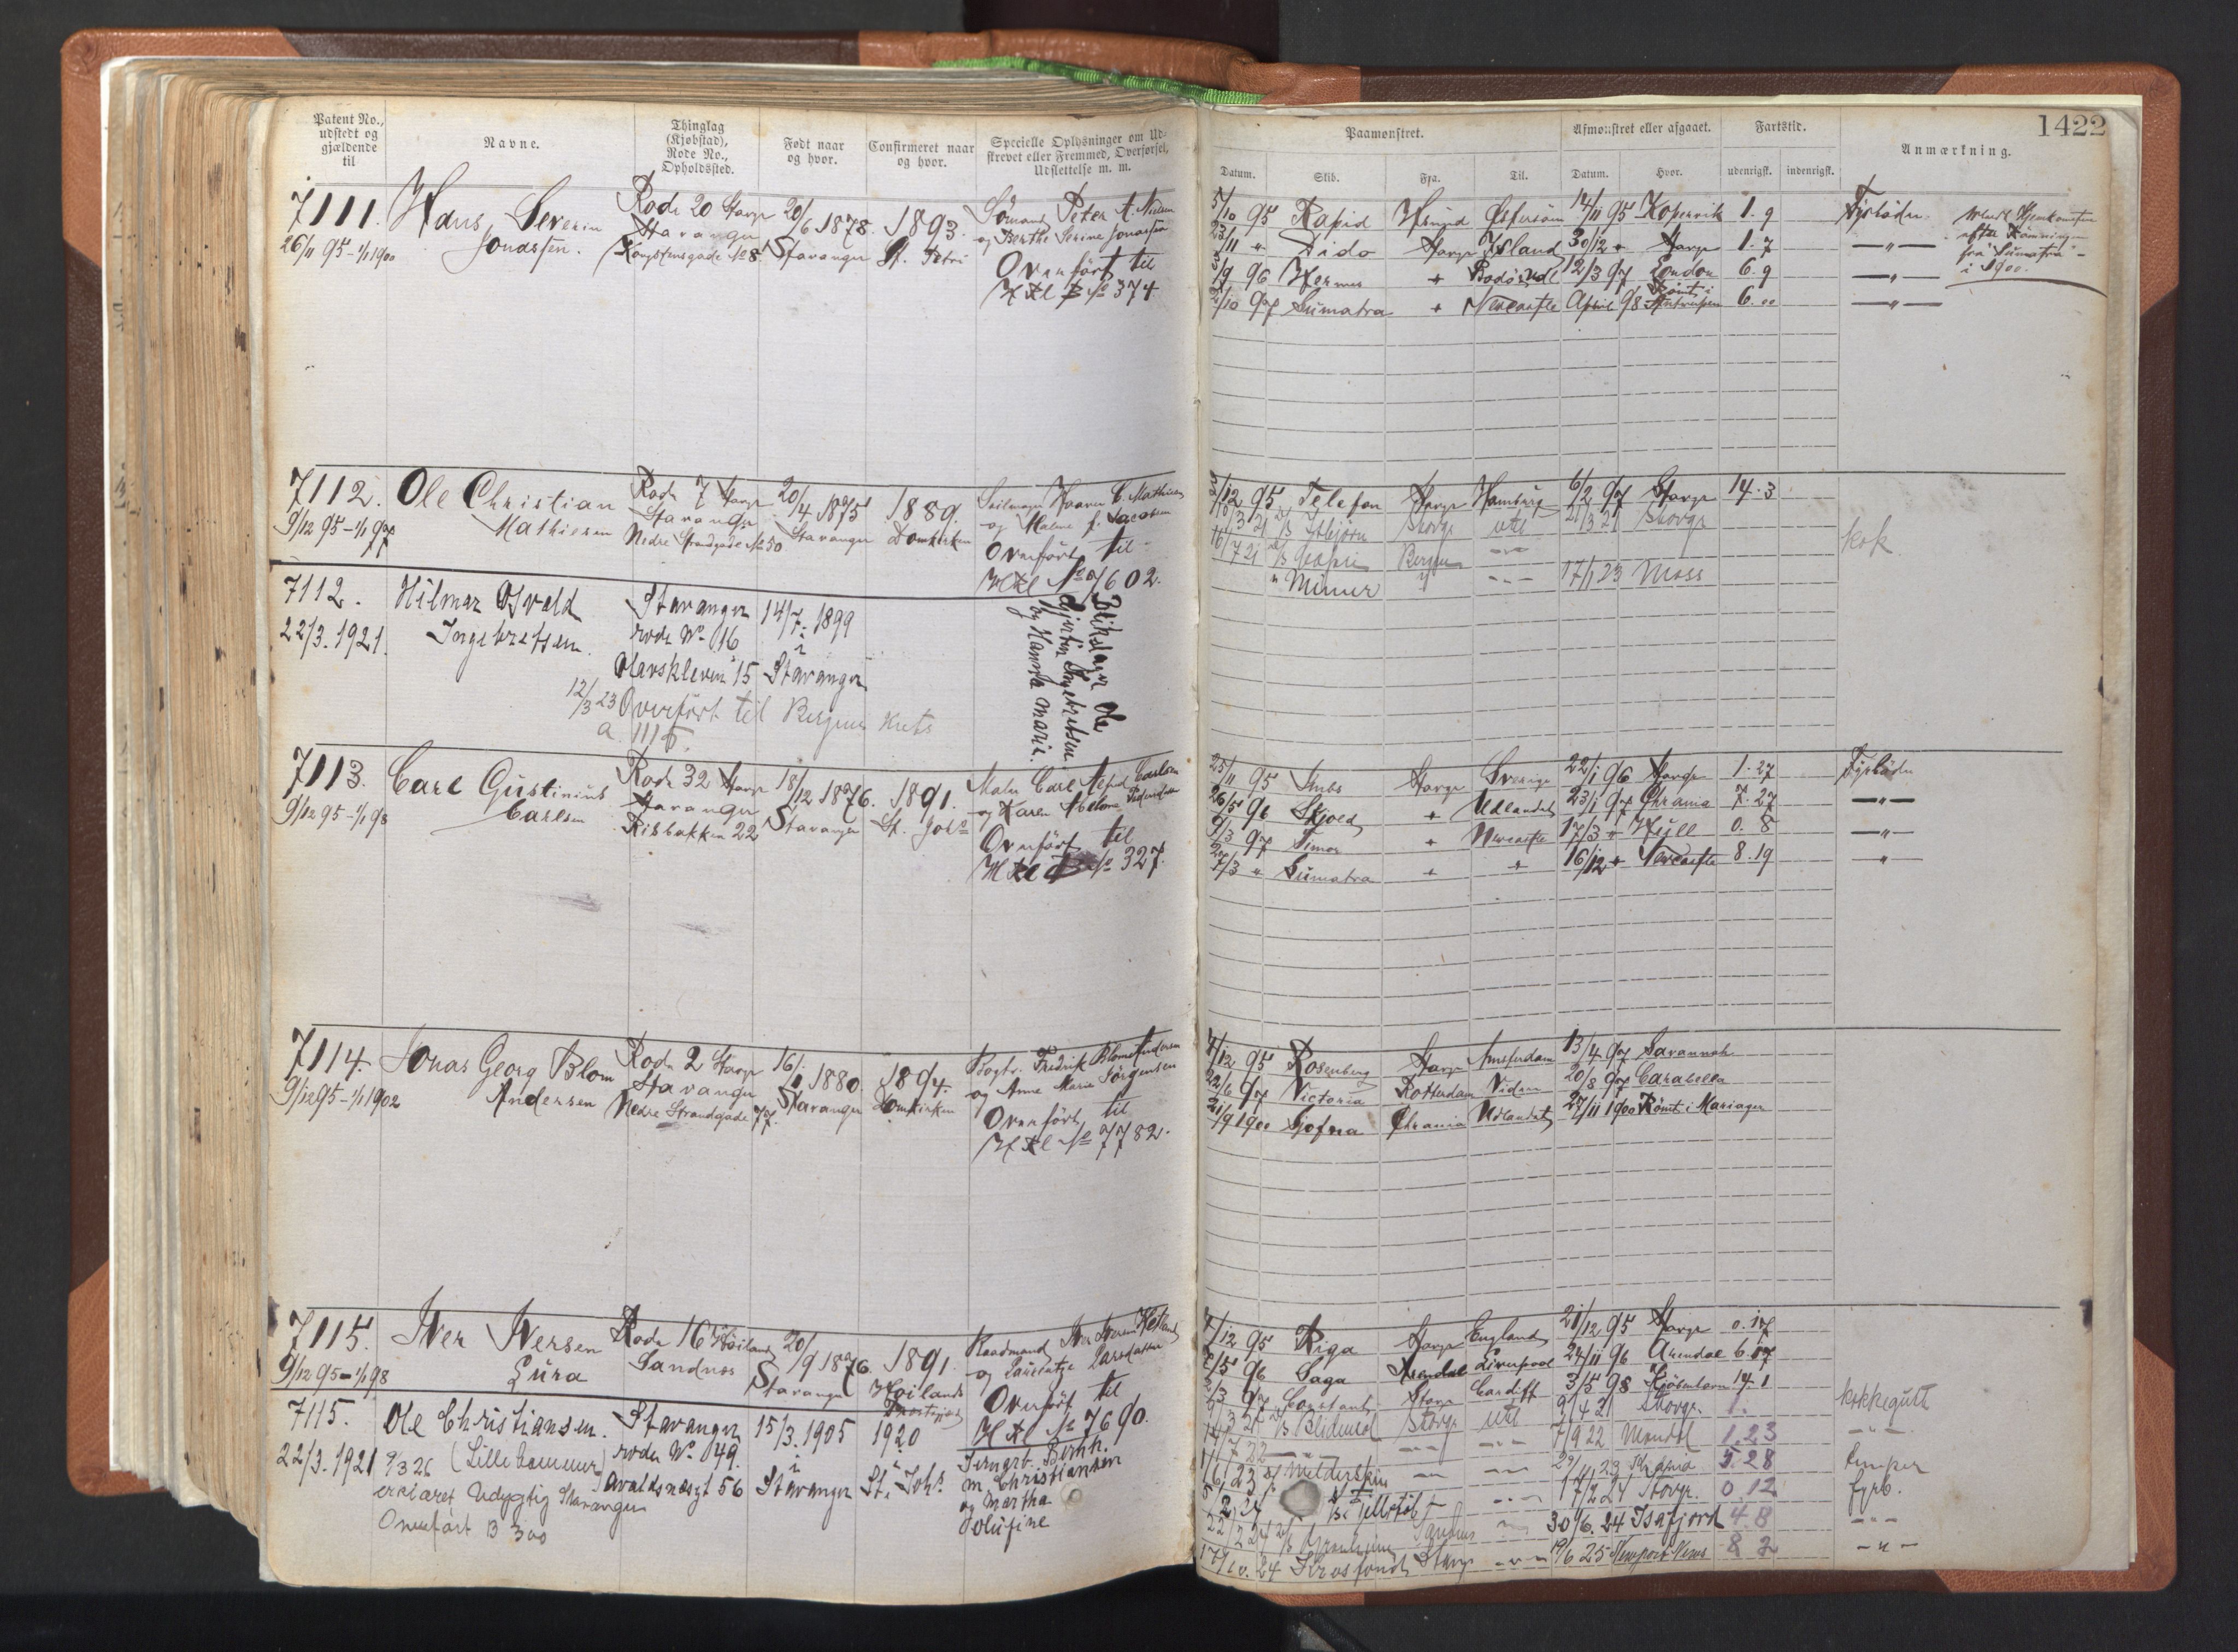 Patent No., udstedt og gjældende til
Navne.
Thinglag (Kjøbstad), Rode No., Opholdssted.
Født naar og hvor.
Confirmeret naar og hvor.
Specielle Oplysninger om Udskrevet eller Fremmed, Overførsel, Udslettelse m. m.
Paamønstret.
Afmønstret eller afgaaet.
Fartstid.
Anmærkning.
1422
Datum.
Skib.
Fra.
Til.
Datum.
Hvor.
udenrigsk.
indenrigsk.
7111. Hans Severin Rode 20 Stavgr 20/6 1878. 1893. Sømand Peter A. Nielsen
26/11 95 - 1/1 1900 Jonassen. Stavanger Stavanger St. Petri og Berthe Serine Jonassen
Kongstensgade No 8.
Overført til
HRl No 374.
5/10 95 Rapid 14/11 95 Kopervik 1. 9 Fyrbøder
23/11 " Dido Stavgr Island 30/12 " Stavgr 1. 7 — " —
3/9 96 Hermes " 12/3 97 London 6. 9 — " —
2/10 97 Sumatra " Newcastle April 98 Rømt i Antwerpen 6. 00 — " —
efter Rømningen
fra "Sumatra" -
i 1900.
7112. Ole Christian Rode 7 Stavgr 20/4 1875 1889.
9/12 95 - 1/1 97 Mathiesen Stavanger Stavanger Domkirken
Nedre Strandgade No 50
Overført til
HRl No 7602.
2/12 95 Telefon Stavgr Hamburg 6/2 97 Stavgr 14. 3
Isbjørn Stavgr utl 21/3 21 Stavgr
16/7 21 Bergen — " — kok
" Mimer " — " — 17/1 23 Moss
7112. Hilmar Osvald Stavanger 14/7. 1899
22/3. 1921. Ingebretsen. rode No 16 i
Olavskleven 15 Stavanger
Blikslager Ole
Ingebretsen
og Hanna Marie.
12/3 23 Overført til Bergens krets
7113. Carl Gustinius Rode 32 Stavgr 18/12 1876. 1891. Maler Carl Alfred Carlsen
9/12 95 - 1/1 98 Carlsen Stavanger Stavanger St. Johs og Karen
Risbakken 22
Overført til
HRl No 327.
25/11 95 Stavgr Sverige 22/1 96 Stavgr 1. 27 Fyrbøder
26/5 96 Skjold " Udlandet 23/1 97 Chrania 7. 27 — " —
9/3 97 Timor " Newcastle 17/3 " Hull 0. 8 — " —
27/3 " Sumatra " " 16/12 " Newcastle 8. 19 — " —
7114. Jonas Georg Blom Rode 2 Stavgr 16/1 1880 1894. Fredrik Blom Andersen
9/12 95 - 1/1 1902 Andersen Stavanger Stavanger Domkirken og Anne Marie Jørgensen
Nedre Strandgade 77.
Overført til
HRl No 7782.
4/12 95 Rosenberg Stavgr Amsterdam 13/4 97 Savannah
22/6 97 Victoria Rotterdam Viden 20/8 97 Carabella
21/9 1900 Chrania Udlandet 27/11 1900 Rømt i Mariager
7115. Iver Iversen Rode 16 Høiland 20/9 1876. 1891. Iver Iversen
9/12 95 - 1/1 98 Lura Sandnes Stavanger Høilands og Larsdatter
Overført til
HRl No 7690.
7/12 95 Riga Stavgr England 21/12 95 Stavgr 0. 17
2/5 96 Saga Arendal Liverpool 24/11 96 Arendal 6. 17
2/3 97 Constant Stavgr Cardiff 3/5 98 Kjøbenhavn 14. 1
7115. Ole Christiansen. Stavanger 15/3. 1905 1920
22/3. 1921 (Lille Gommer) rode No 049. i i Bernh.
avaldsnesgt 56 Stavanger St. Johs. Christiansen
og Martha
Olufine
9/3 26
erklæret Udygtig Stavanger
Overført B 300
Stavgr utl 9/4 21 Stavgr. 1. kokkegutt
14/7 22 — " — — " — 7/9 22 Mandal 1. 23 — " —
— " — — " — 5. 28 lemper
— " — 17/2 24 Stavgr. 0. 12 fyrb.
22/2 24 — " — 30/6. 24 Isafjord 4. 8 — " —
24 Stavgr — " — 19/6 25 Newport News 8 2 — " —